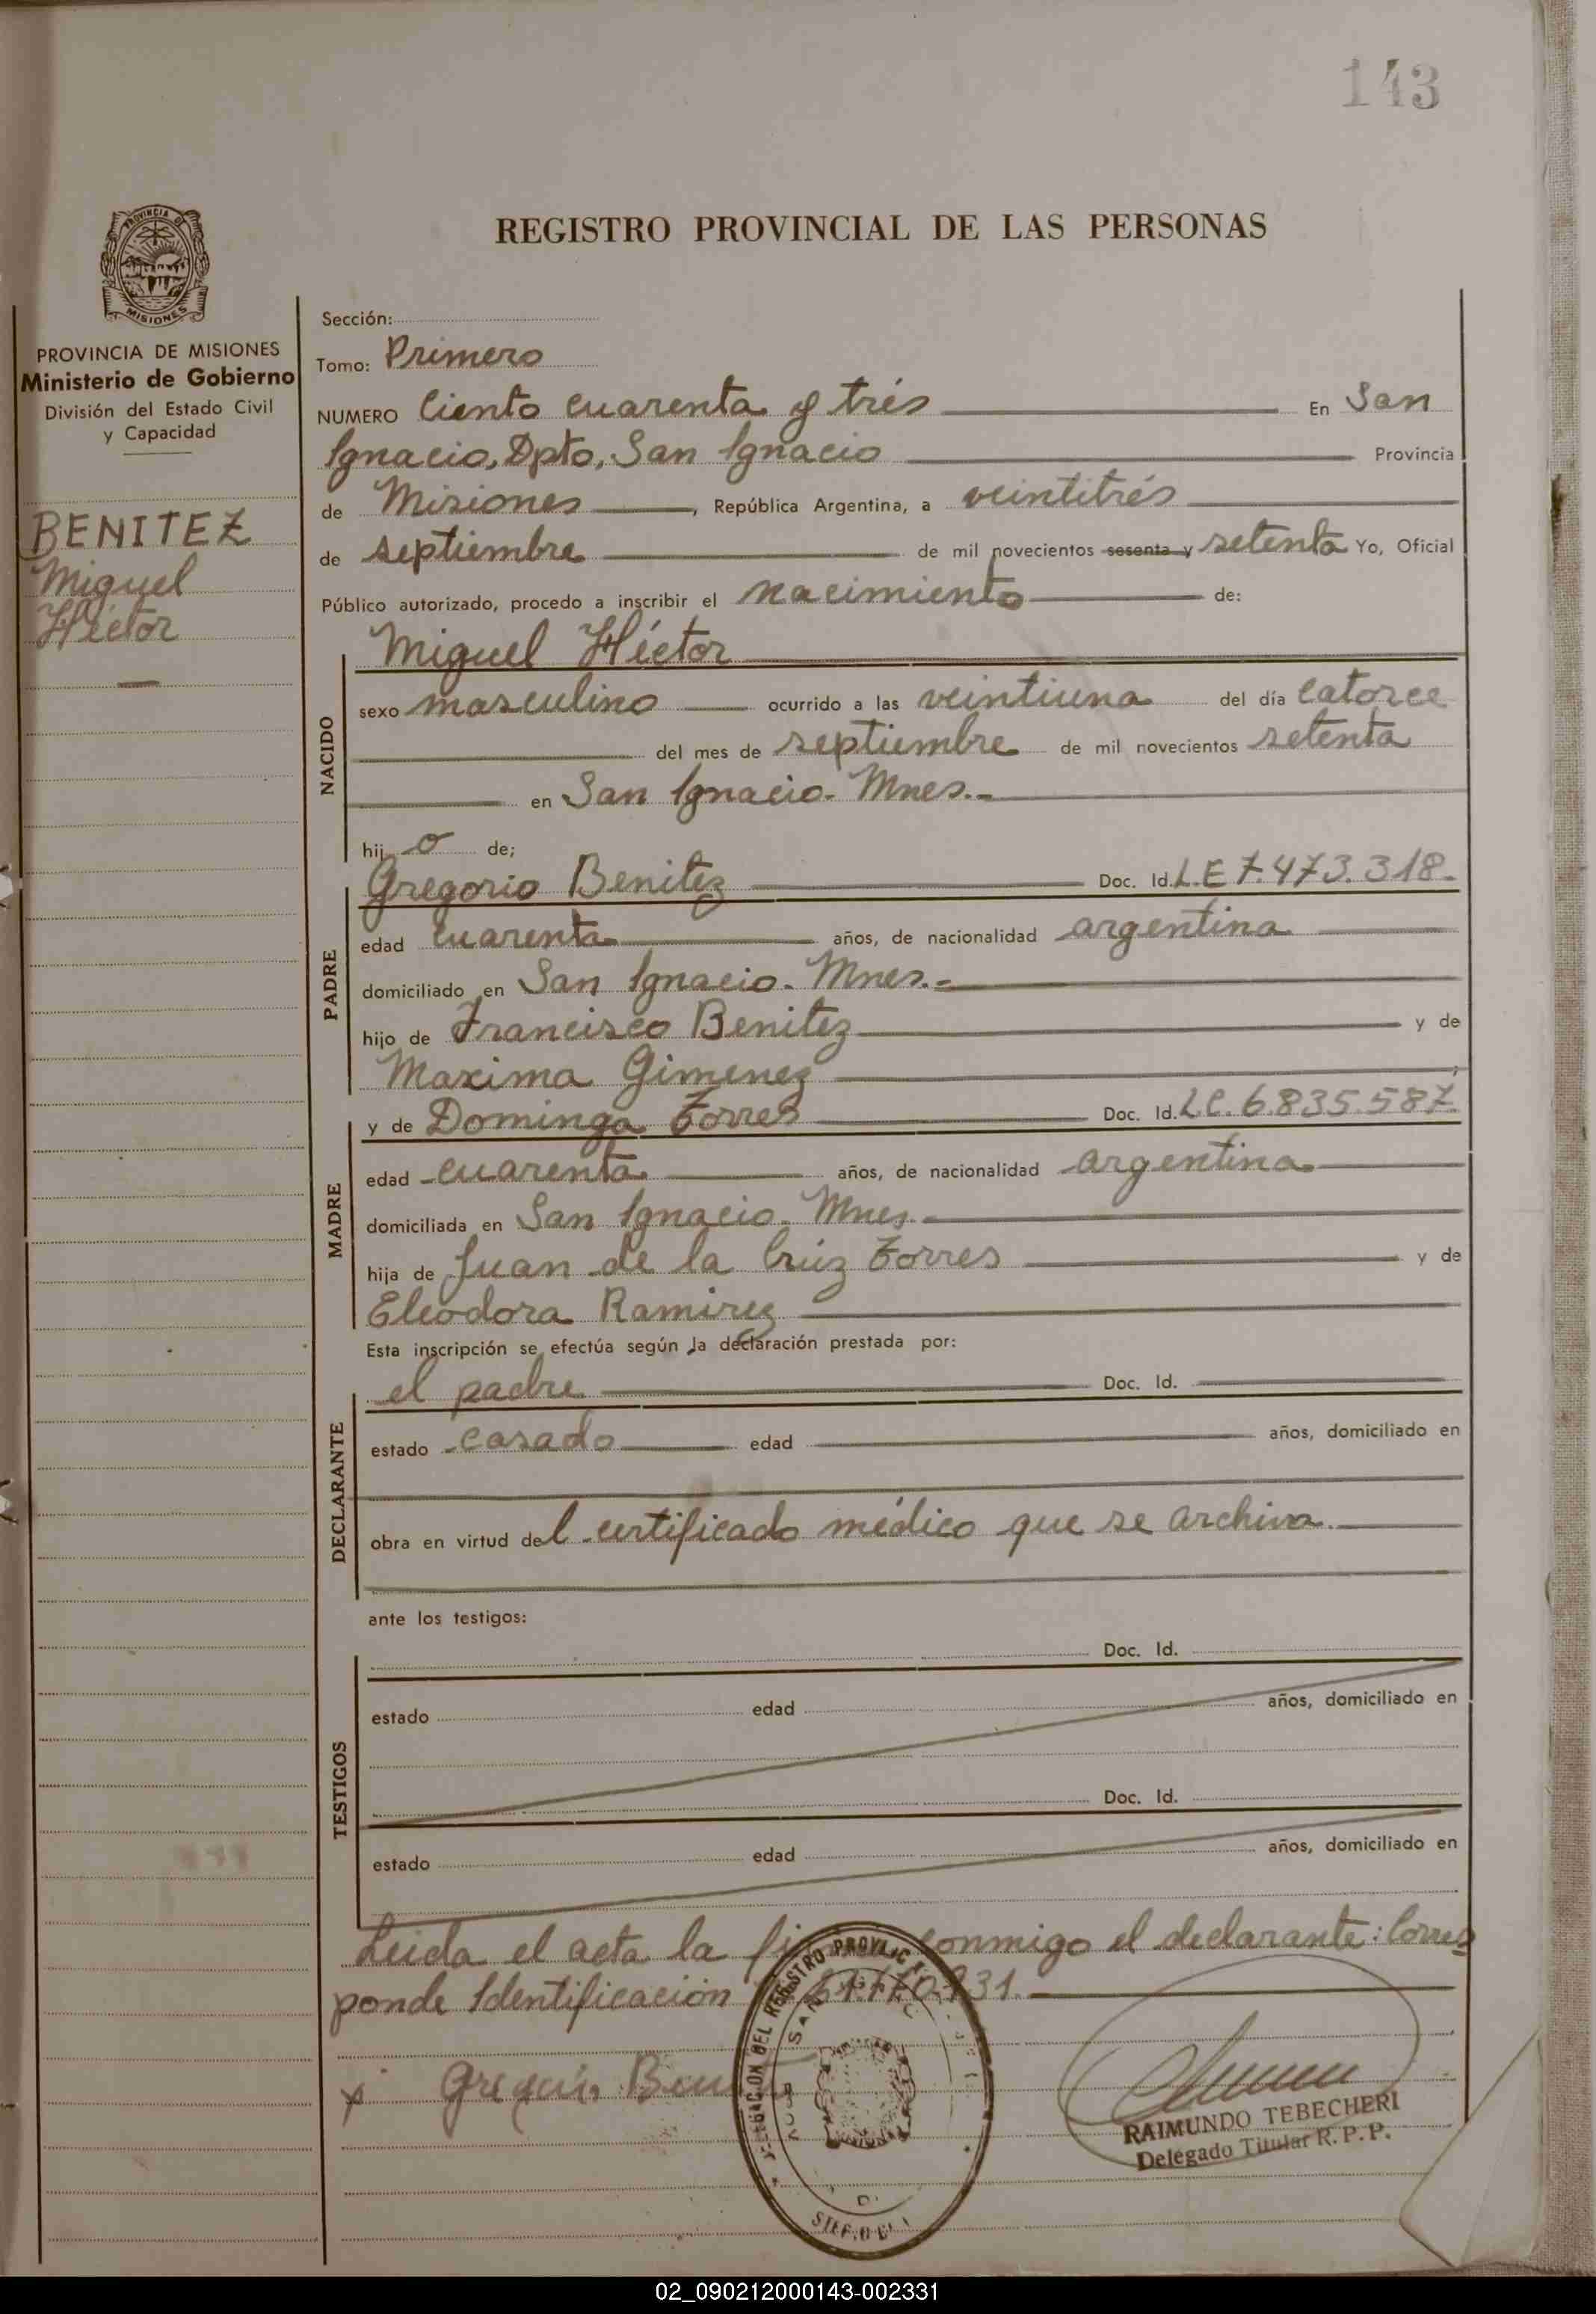 143
REGISTRO PROVINCIAL DE LAS PERSONAS
PROVINCIA DE
MISIONES
PROVINCIA DE MISIONES
Ministerio de Gobierno
División del Estado Civil
y Capacidad
BENITEZ
Miguel
Héctor
Sección:
Tomo: Primero
NUMERO Ciento cuarenta y trés En San
Ignacio, Dpto, San Ignacio Provincia
de Misiones, República Argentina, a veintitrés
de septiembre de mil novecientos sesenta y setenta Yo, Oficial
Público autorizado, procedo a inscribir el nacimiento de:
NACIDO
Miguel Héctor
sexo masculino ocurrido a las veintiuna del día catorce
del mes de septiembre de mil novecientos setenta
en San Ignacio - Mnes.-
hijo de;
PADRE
Gregorio Benitez Doc. Id. L.E 7.473.318.
edad cuarenta años, de nacionalidad argentina
domiciliado en San Ignacio - Mnes.-
hijo de Francisco Benitez y de
Maxima Gimenez
MADRE
y de Dominga Torres Doc. Id. L.C. 6.835.587.
edad cuarenta años, de nacionalidad argentina
domiciliada en San Ignacio - Mnes.
hija de Juan de la Crúz Torres y de
Eleodora Ramirez
Esta inscripción se efectúa según la declaración prestada por:
DECLARANTE
el padre Doc. Id.
estado casado edad años, domiciliado en
obra en virtud del certificado médico que se archiva.
ante los testigos:
TESTIGOS
Doc. Id.
estado edad años, domiciliado en
Doc. Id.
estado edad años, domiciliado en
Leida el acta la conmigo el declarante: Corres
ponde Identificación
x Gregorio
RAIMUNDO TEBECHERI
Delegado Titular R.P.P.
02_090212000143-002331